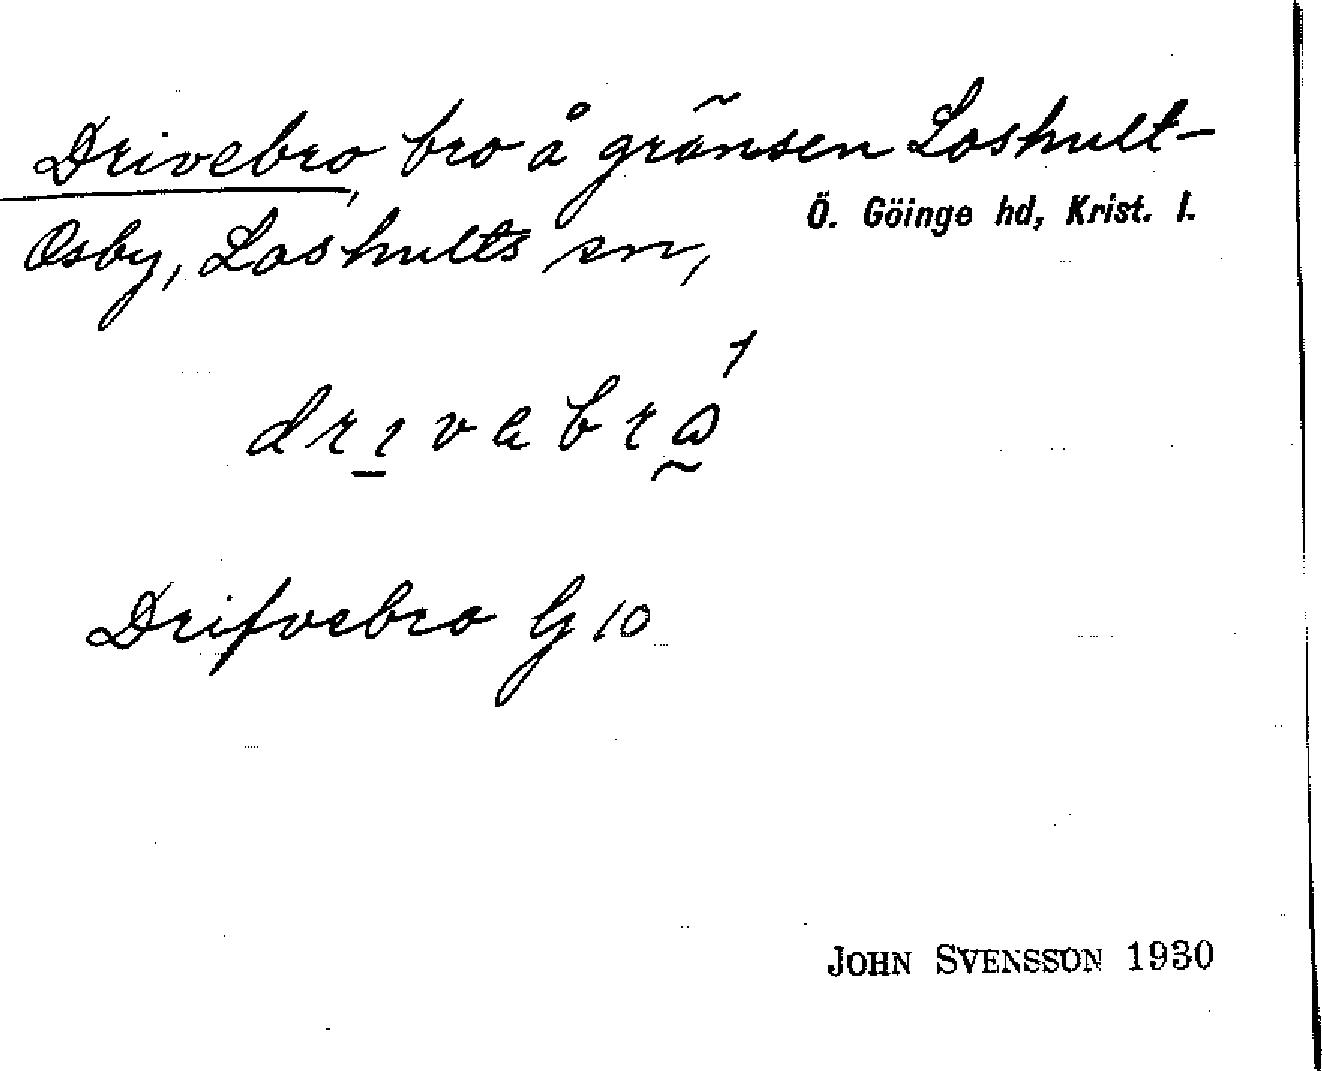 Drivebro, bro å gränsen Loshult-
Ö. Göinge hd, Krist. l.
Osby, Loshults sn,
Drifvebro G 10
JOHN SVENSSON 1930